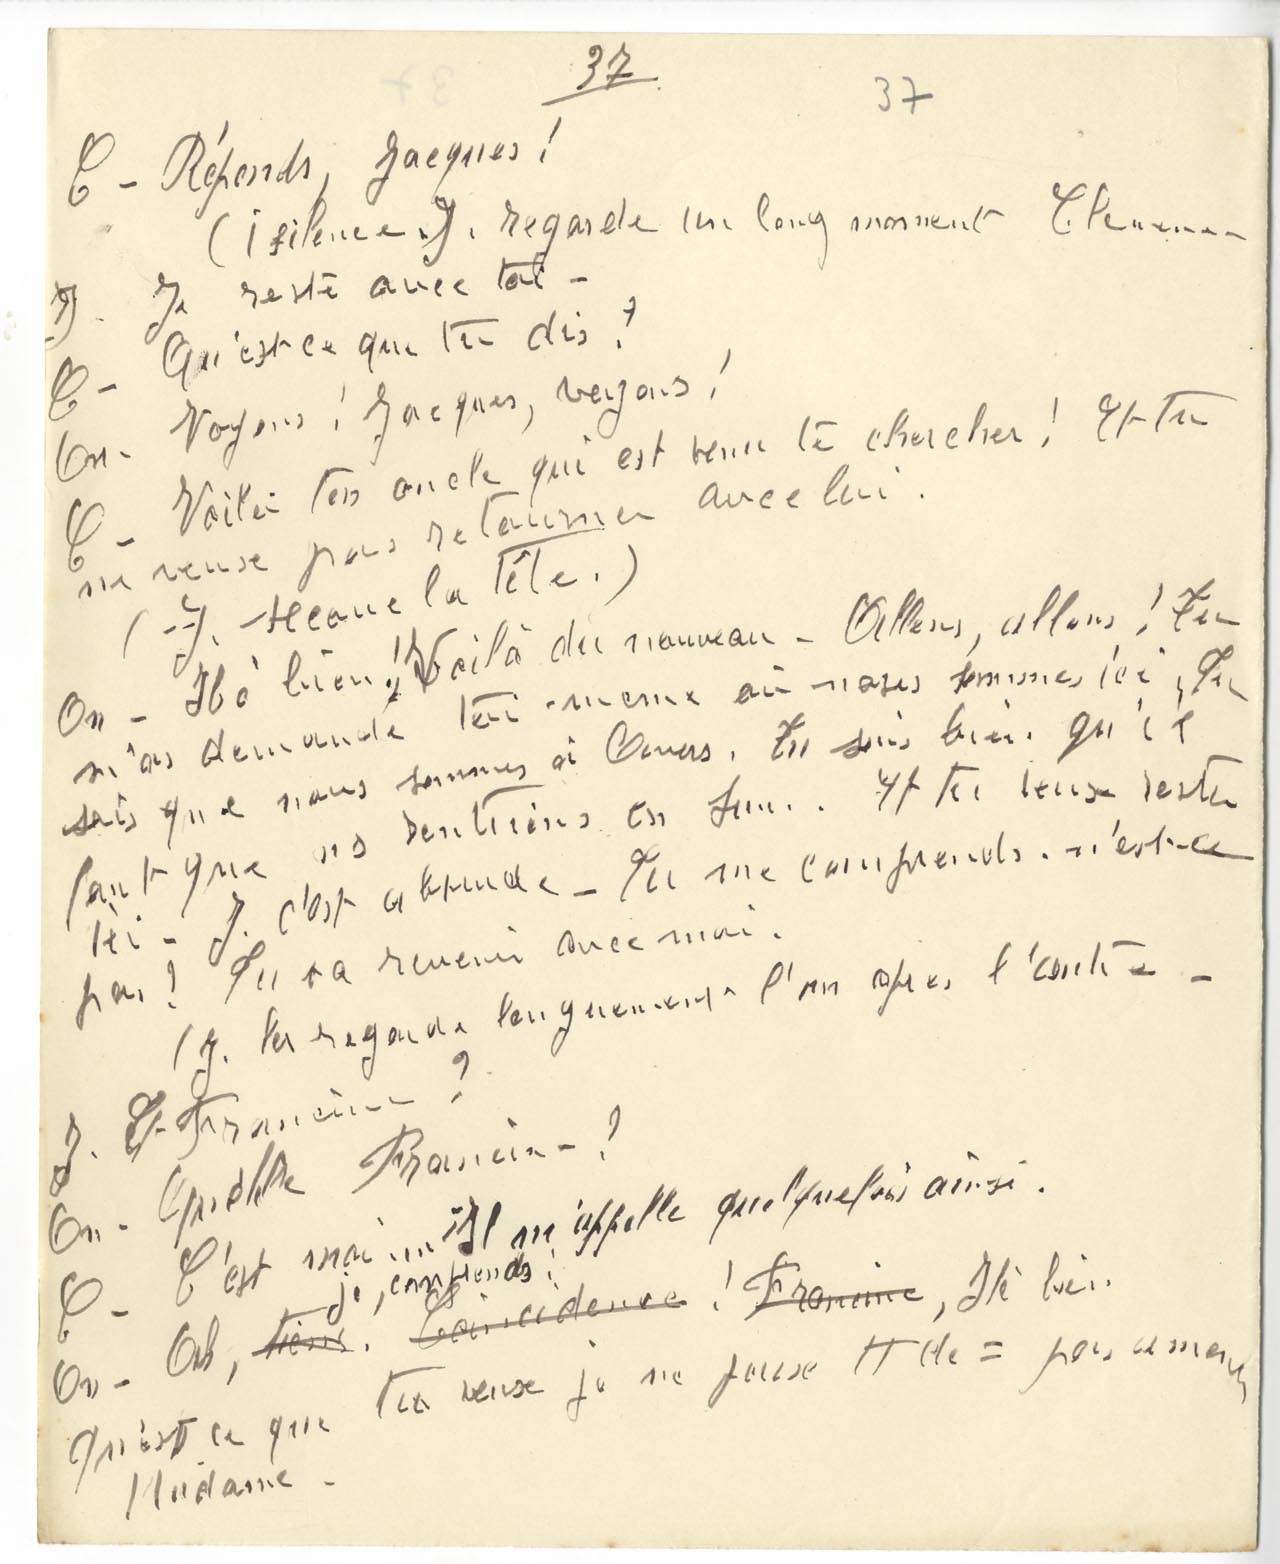 37
37
C - Réponds, Jacques!
(silence. J. regarde un long moment
J. Je reste avec toi -
C - Qu'est ce que tu dis?
On - Voyons! Jacques, voyons!
C - Voilà ton oncle qui est venu te chercher! Et tu
ne veux pas retourner avec lui.
(J. secoue la tête.)
On - Hé bien! Voilà du nouveau - Allons, allons! Tu
m'as demandé toi-meme où nous sommes ici, Tu
sais que nous sommes à Anvers. Tu sais bien qu'il
faut que ns rentrions en Et tu veux rester
ici - J. c'est absurde - Tu me comprends. n'est-ce
pas? Tu va revenir avec moi.
(J. les regarde longuement l'un apres l'autre -
J. Et Francine?
On - Quelle Francine?
C - C'est moi ... Il m'appelle quelquefois ainsi.
je comprends!
On - Ah, tiens. Coincidence! Francine, Hé bien
Qu'est ce que tu veux je ne peux tt de = pas amener
Madame -